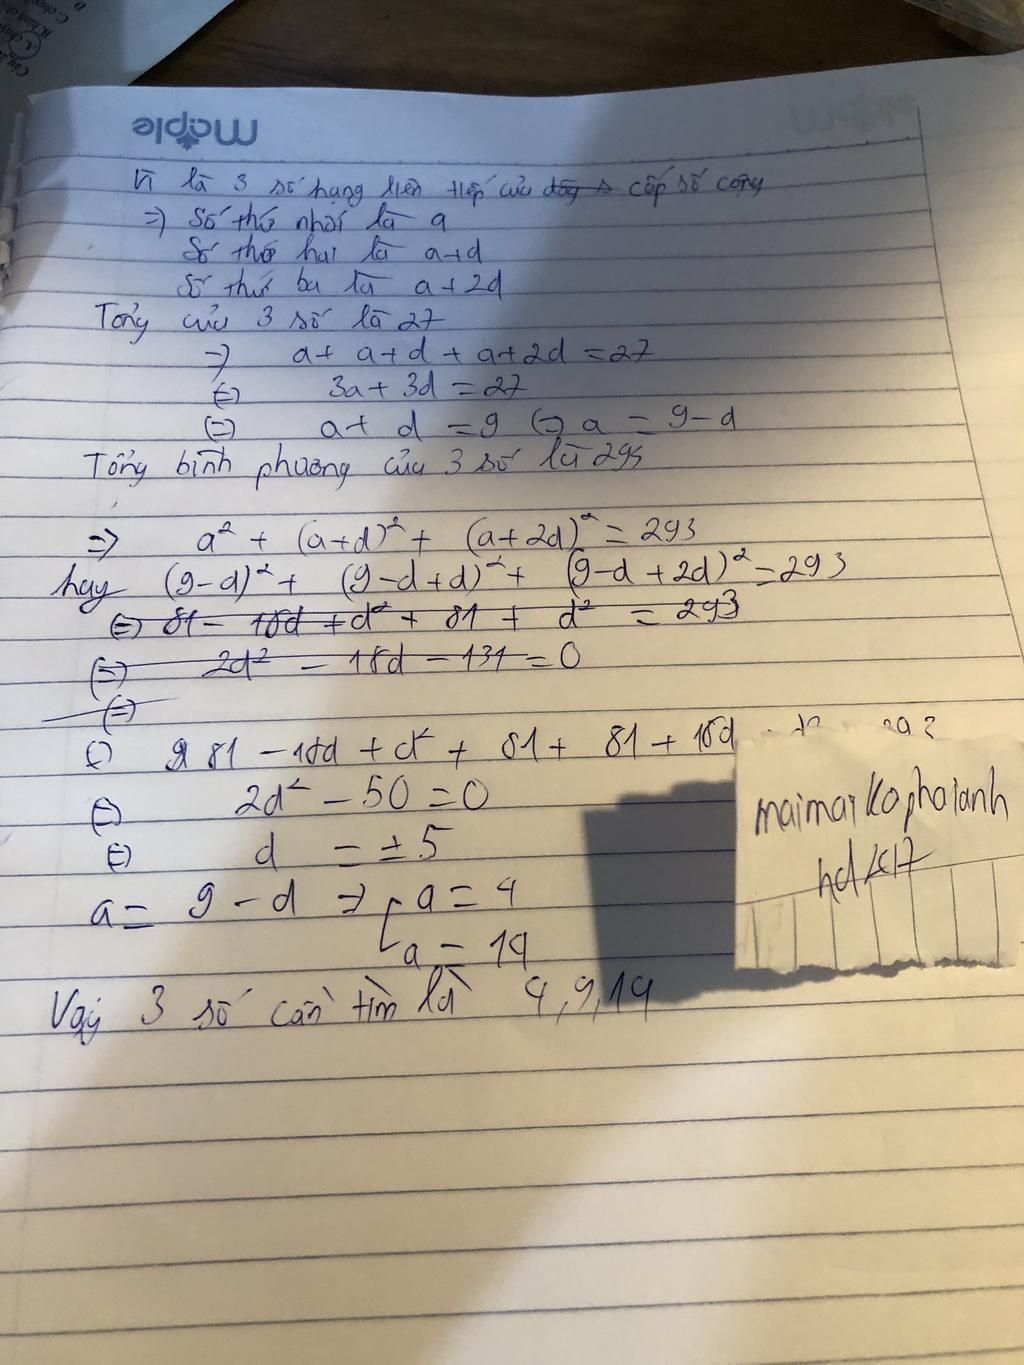 maple
Vì là 3 số hạng liên tiếp của dãy s cấp số cộng
=> Số thứ nhất là a
Số thứ hai là a+d
Số thứ ba là a+2d
Tổng của 3 số là 27
=> a+ a+d + a+2d = 27
<=> 3a+ 3d = 27
<=> a+ d = 9 <=> a = 9-d
Tổng bình phương của 3 số là 293
=> a² + (a+d)² + (a+2d)² = 293
hay (9-d)² + (9-d+d)² + (9-d+2d)² = 293
<=> 81 - 18d + d² + 81 + d² = 293
<=> 2d² - 18d - 131 = 0
<=>
<=> 81 - 18d + d² + 81 + 81 + 18d
<=> 2d² - 50 = 0
<=> d = ±5
a = 9 - d => [ a = 4
a = 14
Vậy 3 số cần tìm là 4, 9, 14
maimaikophaianh